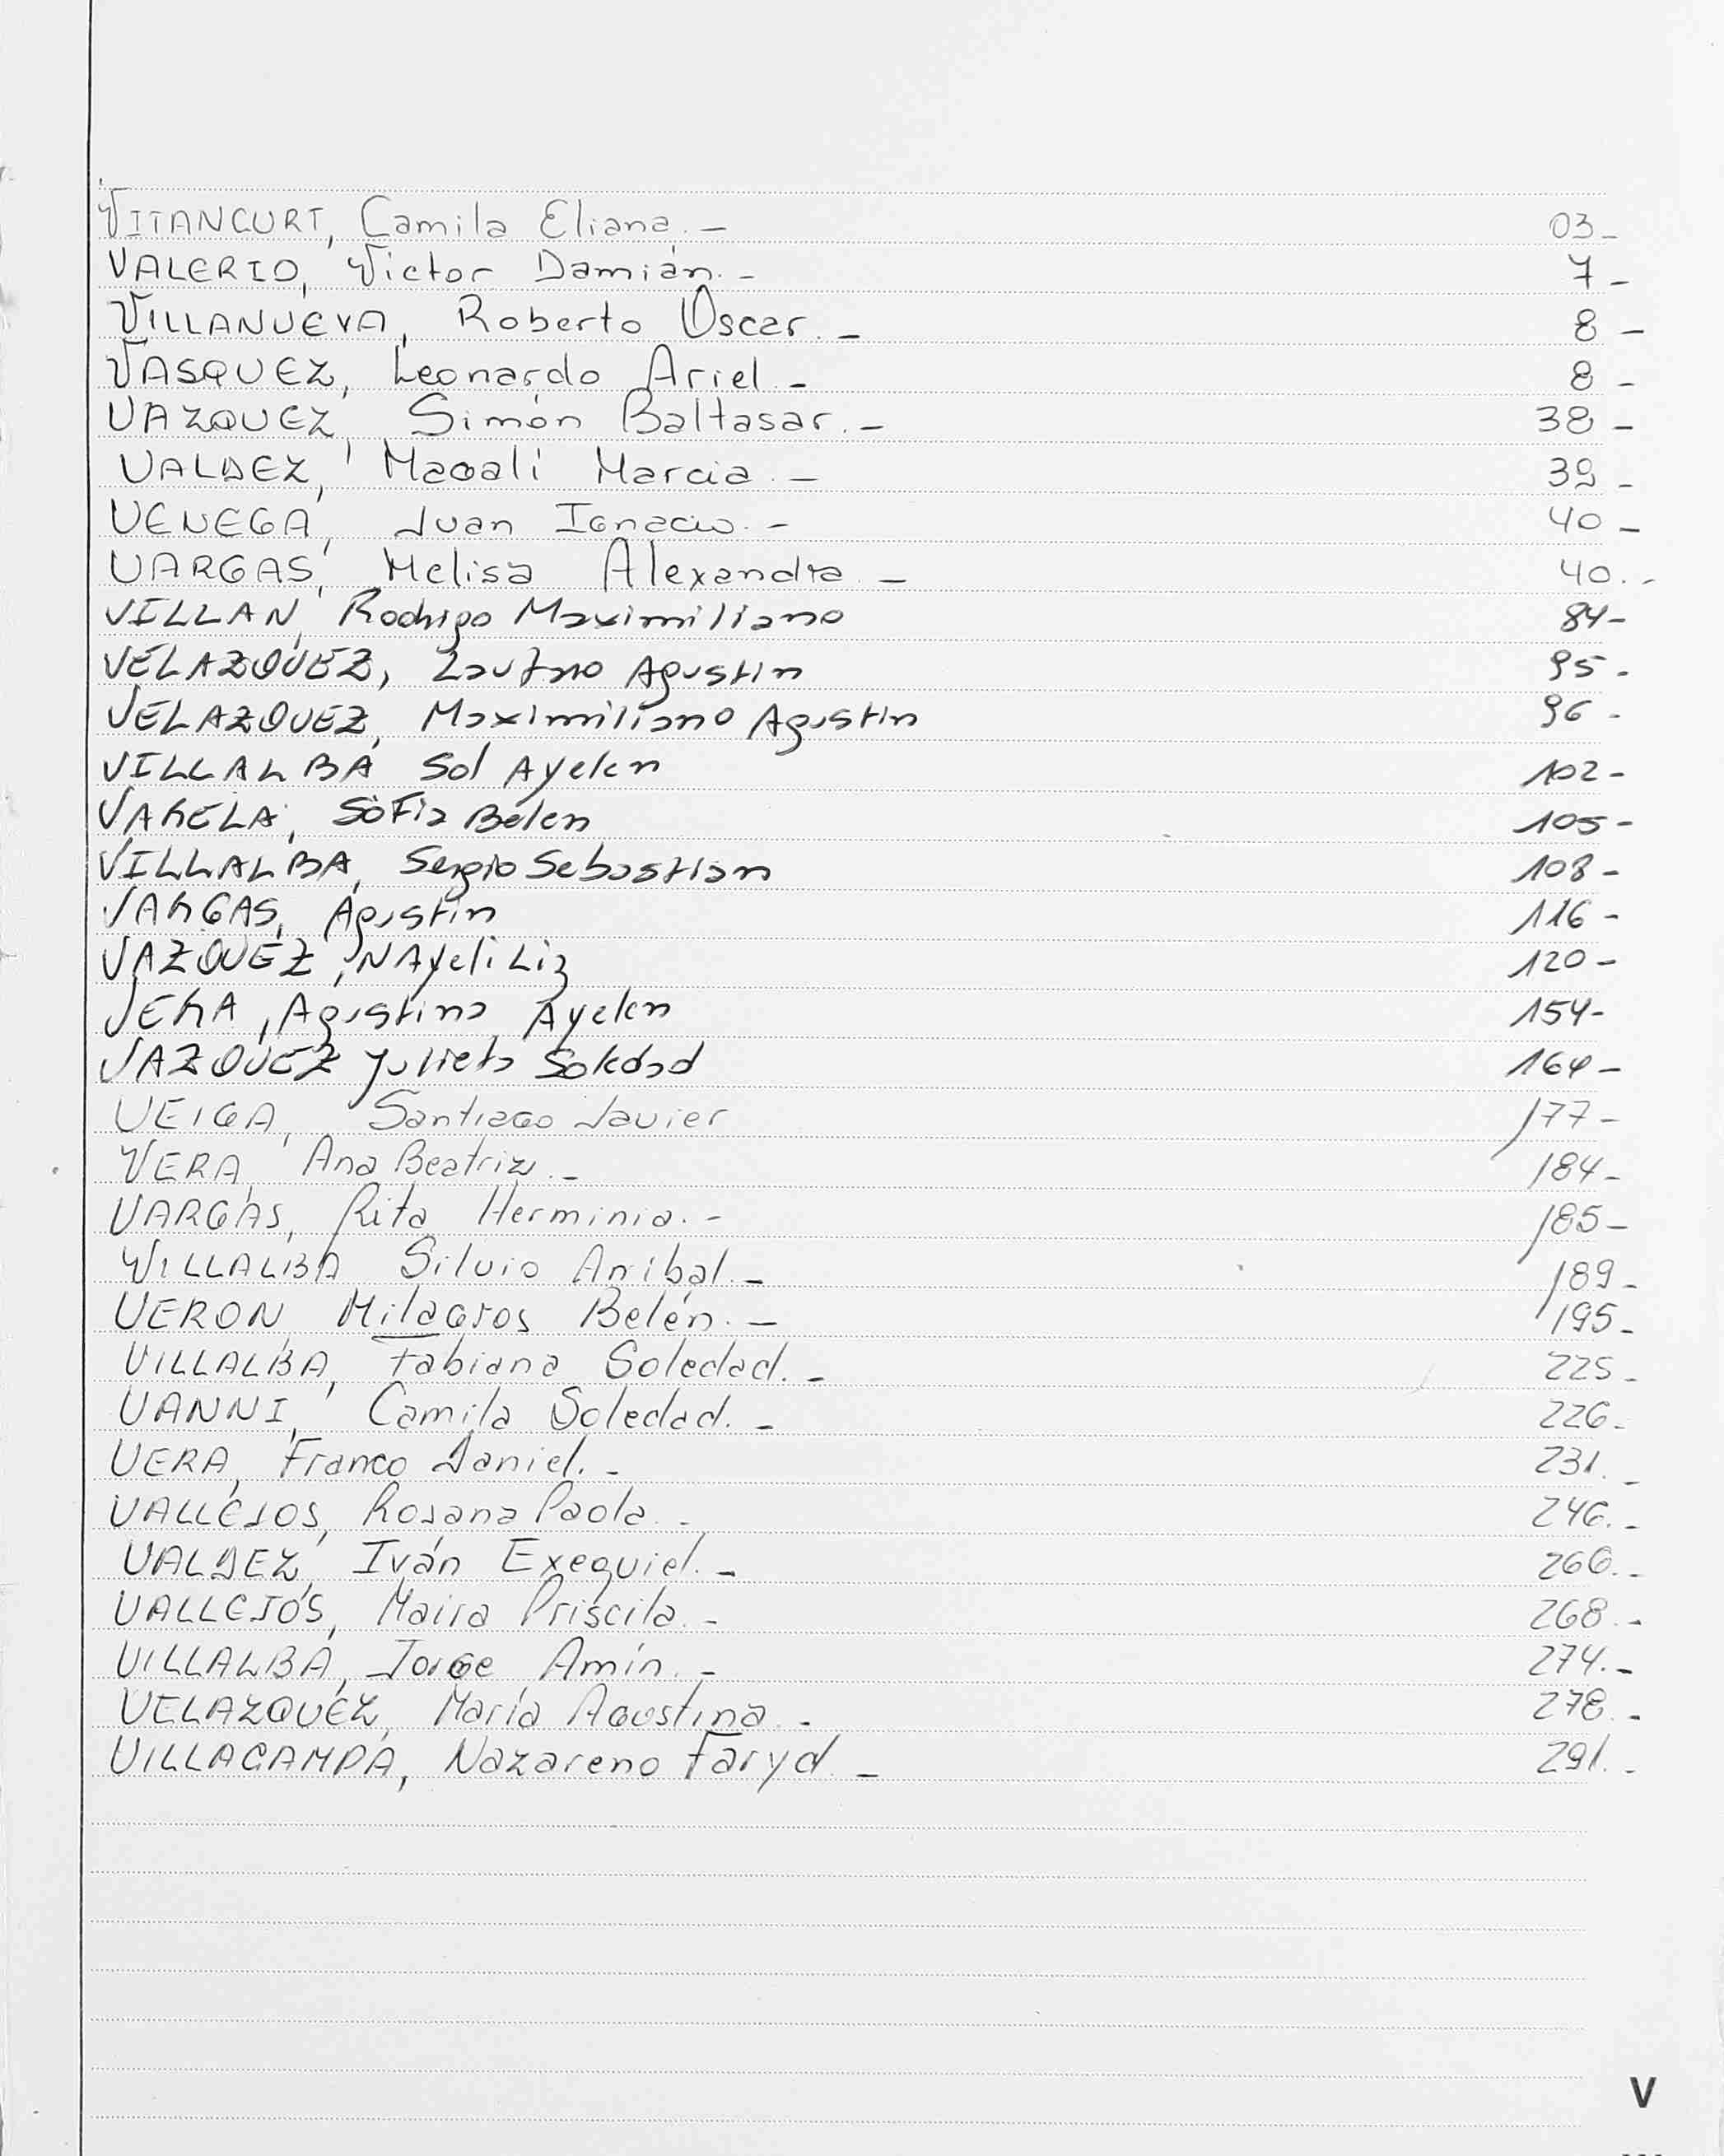 VITANCURT, Camila Eliana.- 03-
VALERIO, Victor Damián.- 7-
VILLANUEVA, Roberto Oscar.- 8-
VASQUEZ, Leonardo Ariel.- 8-
VAZQUEZ, Simón Baltasar.- 38-
VALDEZ, Magali Marcia.- 39-
VENEGA, Juan Ignacio.- 40-
VARGAS, Melisa Alexandra.- 40.-
VILLAN, Rodrigo Maximiliano 84-
VELAZQUEZ, Lautaro Agustin 95-
VELAZQUEZ, Maximiliano Agustin 96-
VILLALBA Sol Ayelen 102-
VARELA, Sofia Belen 105-
VILLALBA, Sergio Sebastian 108-
VARGAS, Agustin 116-
VAZQUEZ, NAyeli Liz 120-
VERA, Agustina Ayelen 154-
VAZQUEZ Julieta Soledad 164-
VEIGA, Santiago Javier 177-
VERA, Ana Beatriz.- 184-
VARGAS, Rita Herminia.- 185-
VILLALBA Silvio Aníbal.- 189-
VERON, Milagros Belén.- 195-
VILLALBA, Fabiana Soledad.- 225-
VANNI, Camila Soledad.- 226-
VERA, Franco Daniel.- 231.-
VALLEJOS, Rosana Paola.- 246.-
VALDEZ, Iván Exequiel.- 266.-
VALLEJOS, Maira Priscila.- 268.-
VILLALBA, Jorge Amín.- 274.-
VELAZQUEZ, María Agustina.- 278.-
VILLACAMPA, Nazareno Faryd.- 291.-
V